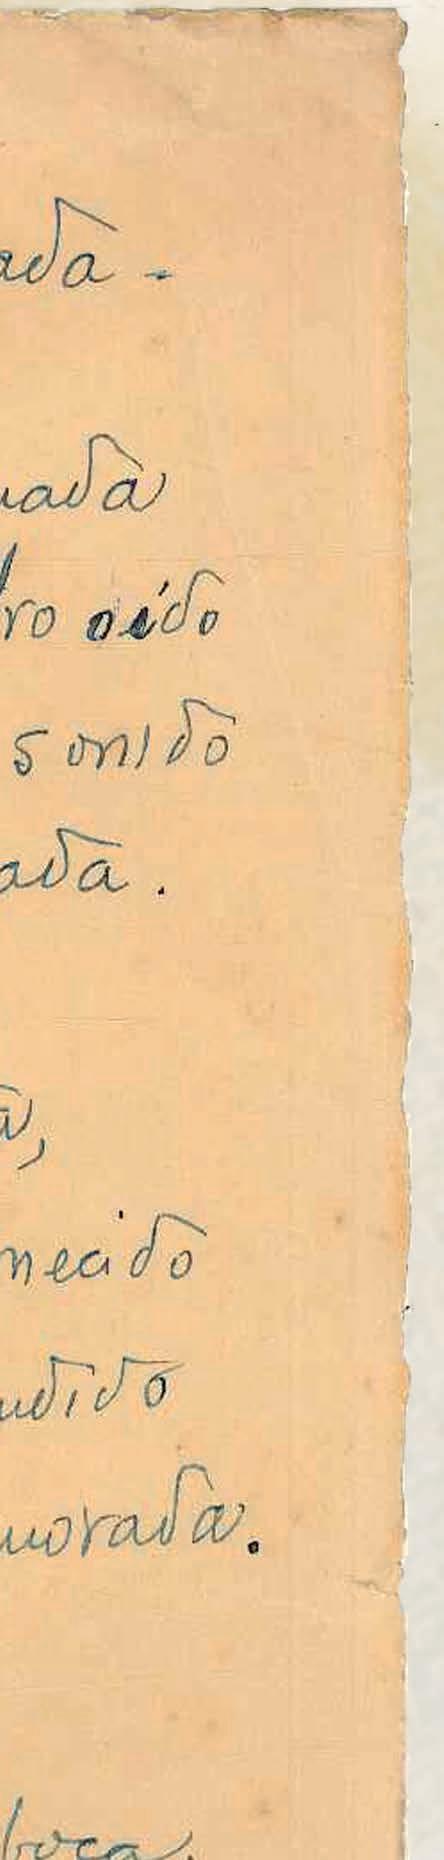 ada -
nada
ro oído
sonido
ada.
a,
necido
ndido
morada.
boca,